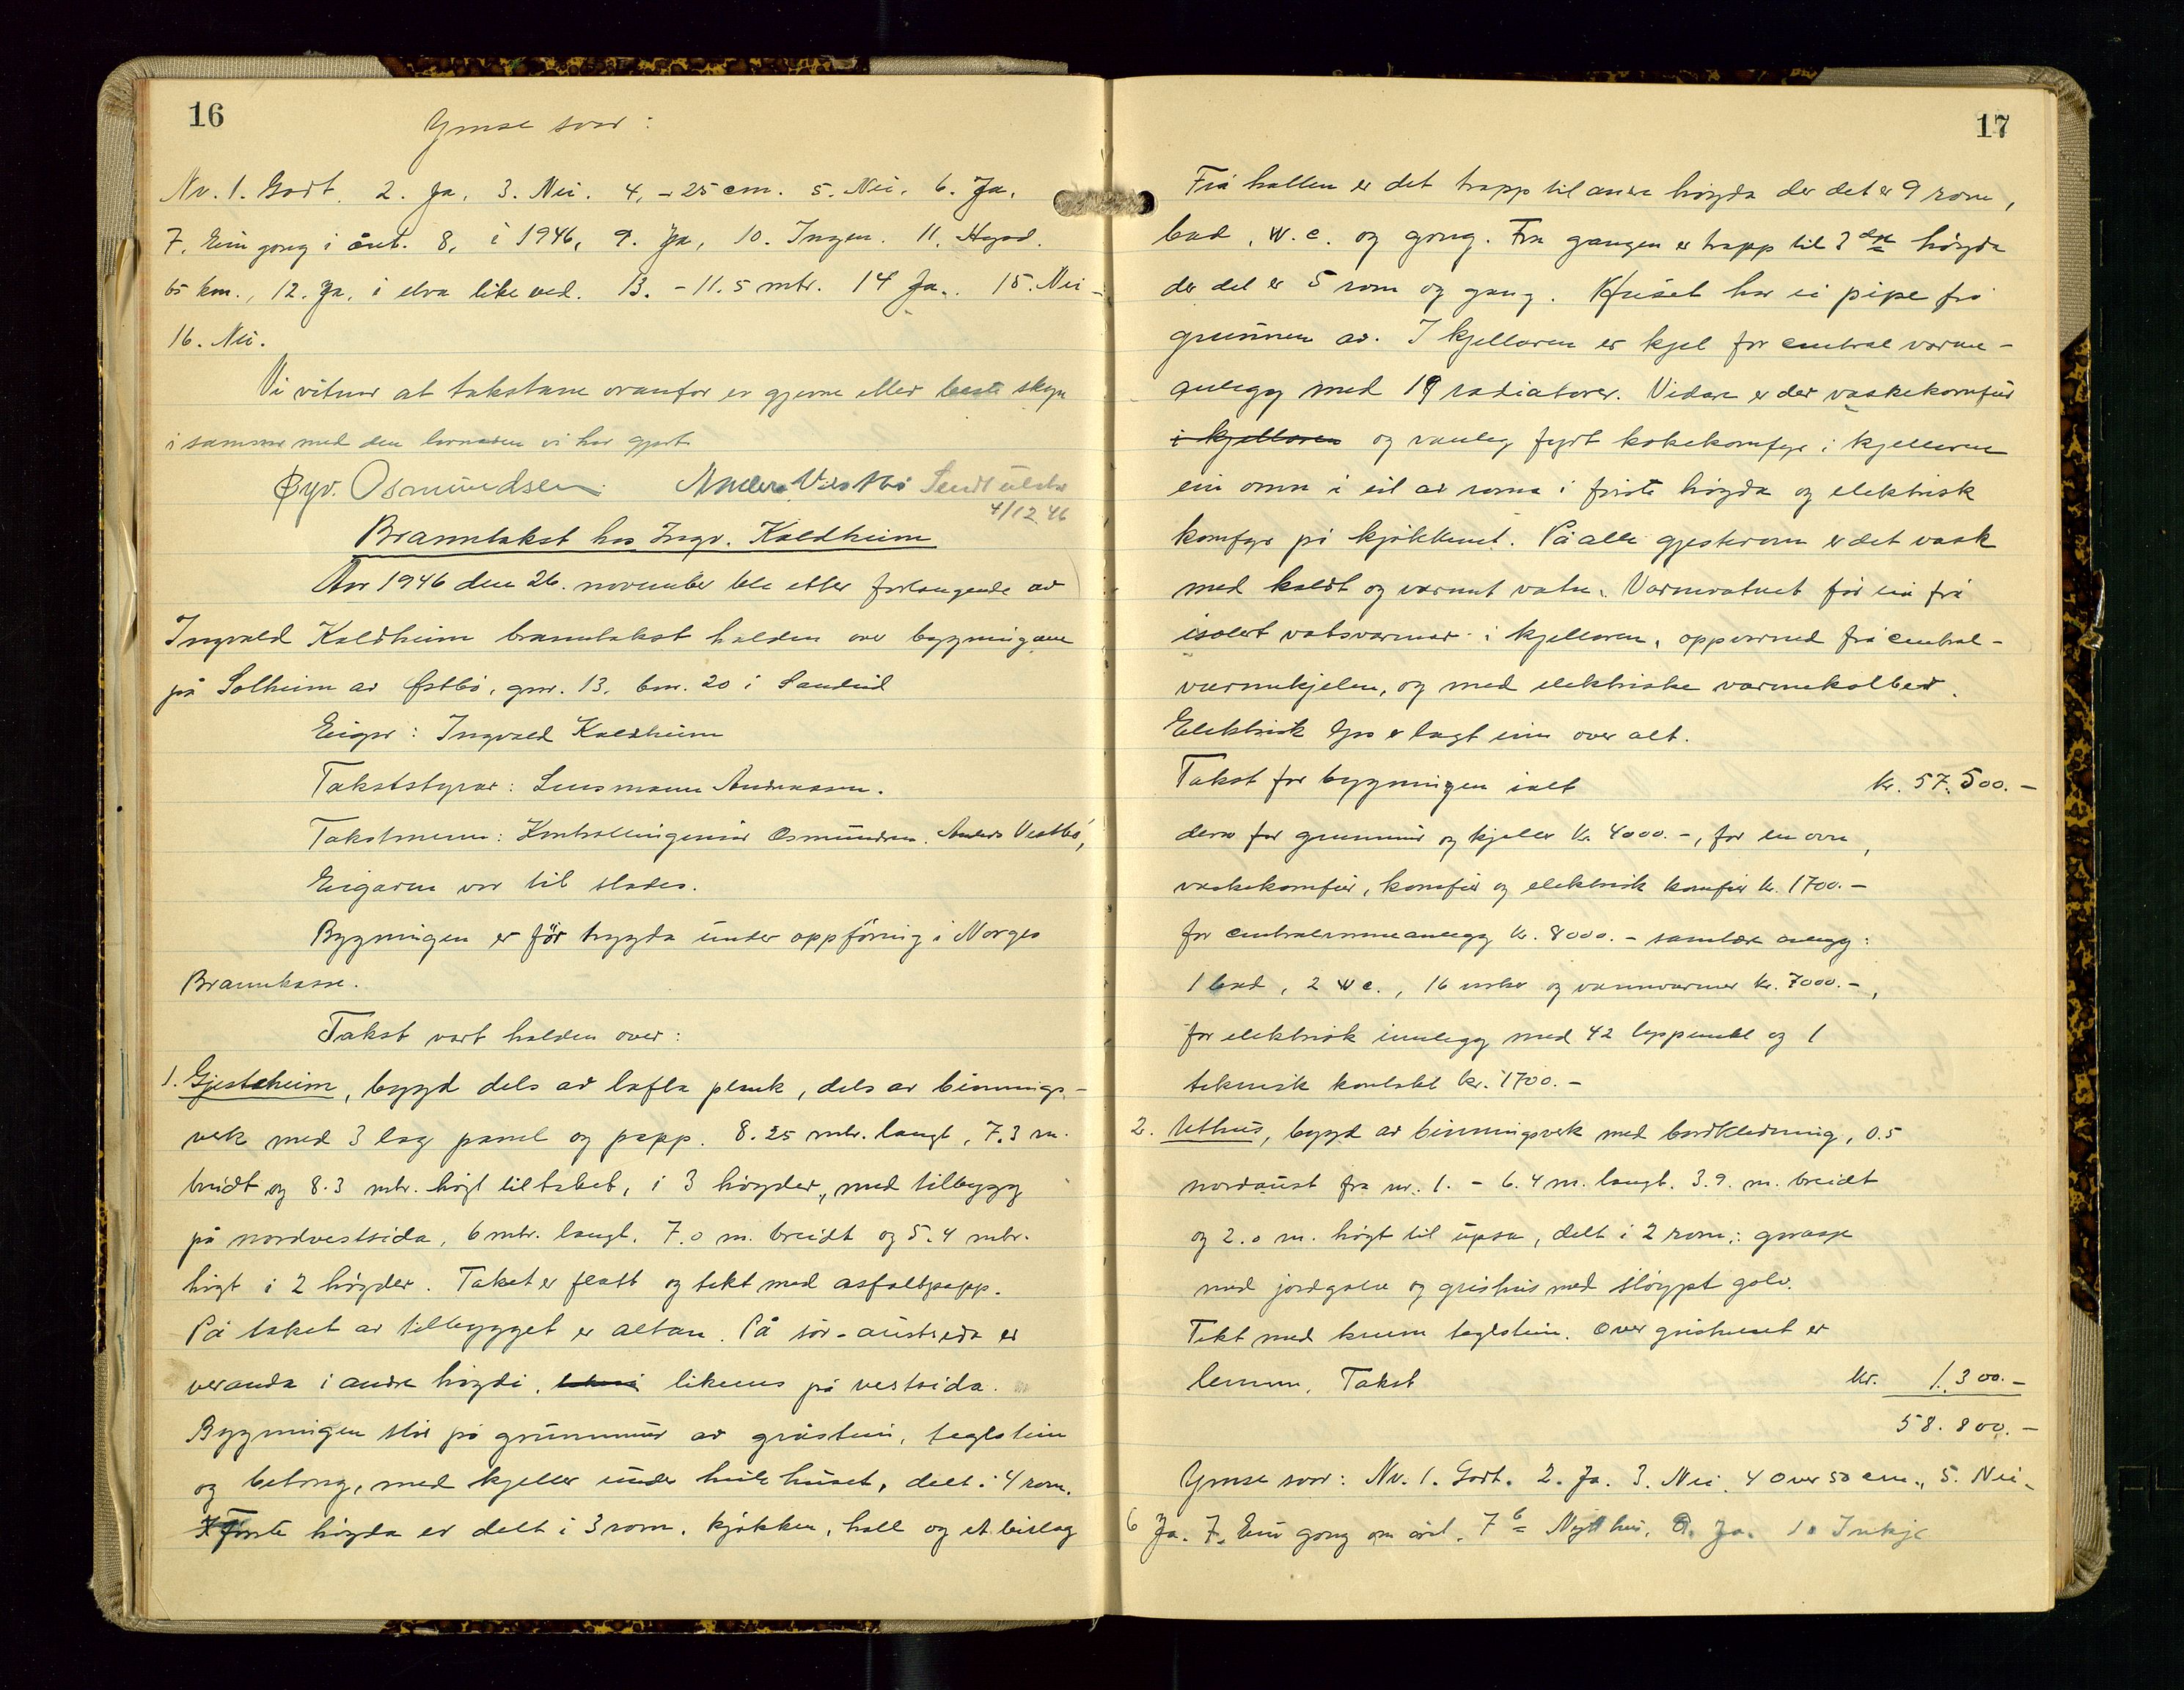 16
Ymse svar:
Nr. 1. Godt. 2. Ja. 3. Nei. 4. - 25 cm. 5. Nei. 6. Ja.
7. Ein gong i året. 8. i 1946, 9. Ja, 10. Ingen. 11. Hydr.
65 km., 12. Ja, i elva like ved. 13. - 11.5 mtr. 14 Ja. 15. Nei -
16. Nei.
Vi vitnar at takstane ovanfor er gjevne etter beste skyn
i samsvar med den lovnaden vi har gjort.
Øyv. Osmundsen. Anders Vestbø Sendt
4/12 46
Branntakst hos Ingv. Kaldheim
Aar 1946 den 26. november ble etter forlangende av
Ingvald Kaldheim branntakst halden over bygningane
på Solheim av Østbø, gnr. 13, bnr. 20 i Sandeid
Eigar: Ingvald Kaldheim
Takststyrar: Lensmann Andreasen.
Takstmenn: Kontrollingeniør Osmundsen. Anders Vestbø,
Eigaren var til stades.
Bygningen er før trygda under oppføring i Norges
Brannkasse.
Takst vart halden over:
1. Gjestaheim, bygd dels av lafta plank, dels av binnings-
verk med 3 lag panel og papp. 8.25 mtr. langt, 7.3 m.
breidt og 8.3 mtr. høgt til taket, i 3 høgder, med tilbygg
på nordvestsida, 6 mtr. langt, 7.0 m. breidt og 5.4 mtr.
høgt i 2 høgder. Taket er flatt og tekt med asfaltpapp.
På taket av tilbygget er altan. På sør-austsida er
veranda i andre høgdi, likeens på vestsida.
Bygningen står på grunnmur av gråstein, teglstein
og betong, med kjeller under heile huset, delt i 4 rom.
Fyrste høgda er delt i 3 rom, kjøkken, hall og et bislag
17
Frå hallen er det trapp til andre høgda der det er 9 rom,
bad, w.c. og gong. Fra gangen er trapp til 3dje høgda
der det er 5 rom og gang. Huset har ei pipe frå
grunnen av. I kjellaren er kjel for central varme-
anlegg med 19 radiatorer. Vidare er der vaskekomfür
i kjellaren og vanleg fyrt kokekomfyr i kjelleren
ein omn i eit av roma i fyrste høgda og elektrisk
komfyr på kjøkkenet. På alle gjesterom er det vask
med kaldt og varmt vatn. Varmvatnet får ein frå
isolert vatsvarmar i kjellaren, oppvarmed frå central-
varmekjelen, og med elektriske varmekolber.
Elektrisk lys er lagt inn over alt.
Takst for bygningen ialt kr. 57.500.-
derav for grunnmur og kjeller kr. 4000.-, for en ovn,
vaskekomfür, komfür og elektrisk komfür kr. 1700.-
for centralvarmeanlegg kr. 8000.- sanitære anlegg:
1 bad, 2 w c., 16 vasker og vannvarmer kr. 7000.-,
for elektrisk innlegg med 42 lyspunkt og 1
teknisk kontakt kr. 1700.-
2. Uthus, bygd av binningsverk med bordkledning, 0.5
nordaust fra nr. 1. - 6.4 m. langt. 3.9. m. breidt
og 2.0 m. høgt til upsa, delt i 2 rom: garasje
med jordgolv og grishus med støypt golv.
Tekt med krum teglstein. Over grishuset er
lemm. Takst kr. 1.300.-
58.800.-
Ymse svar: Nr. 1. Godt. 2. Ja. 3. Nei. 4 Over 50 cm., 5. Nei.
6 Ja. 7. Ein gong om året. 7b Nytt hus, 9. Ja. 10 Inkje